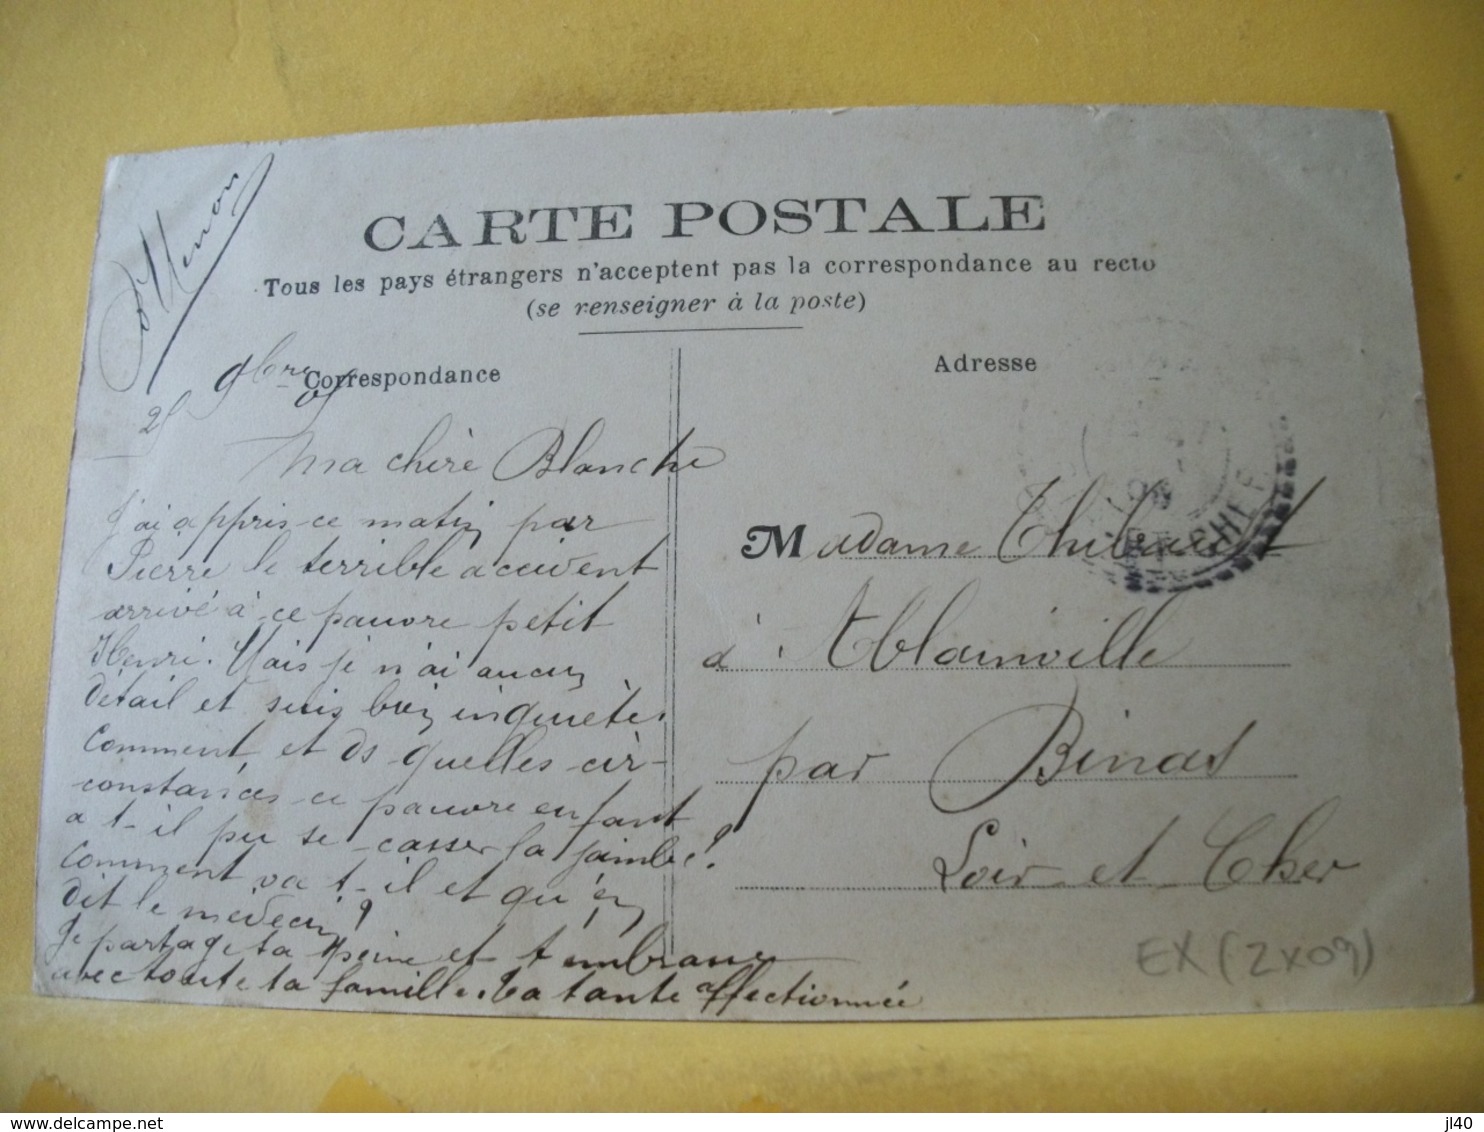 CARTE POSTALE
Tous les pays étrangers n'acceptent pas la correspondance au recto
(se renseigner à la poste)
Correspondance
Adresse
9bre
Ma chère Blanche
J'ai appris ce matin par
Pierre le terrible accident
arrivé à ce pauvre petit
Henri. Mais je n'ai aucun
détail et suis bien inquiète.
Comment et ds quelles cir-
constances ce pauvre enfant
a t-il pu se casser la jambe?
Comment va t-il et qu'en
dit le médecin?
Je partage ta peine et t'embrasse
avec toute ta famille. Ta tante affectionnée
Menon
Madame Thibault
à Ablainville
par Binas
Loir et Cher
EX (2X09)
jl40